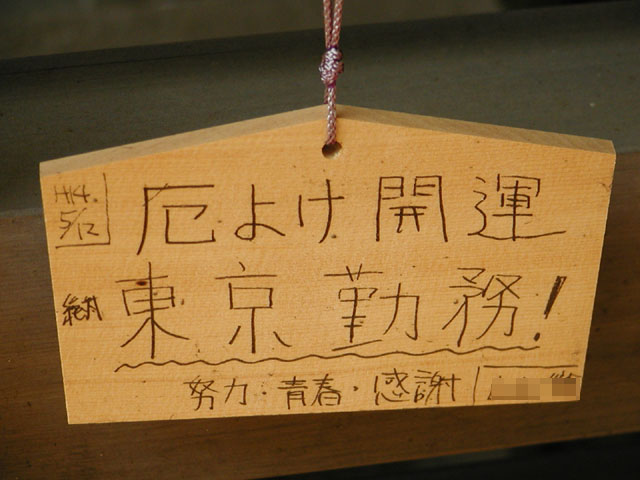 H14.
5/12
厄よけ開運
納
東京勤務!
努力・青春・感謝